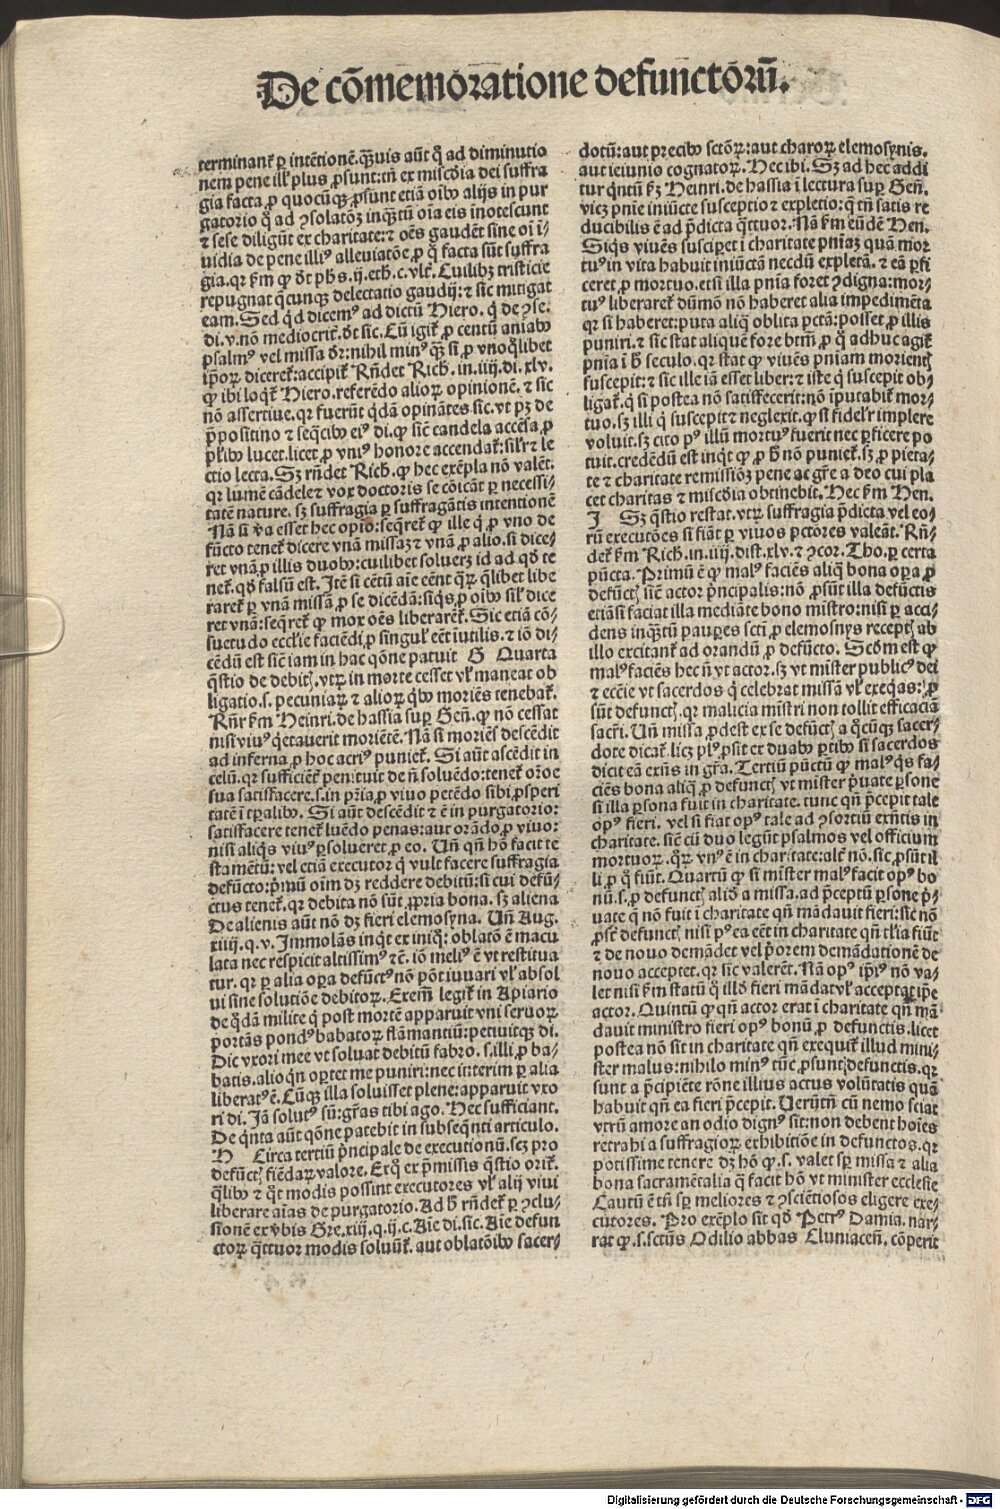 De cōmemoratione defunctoꝝ.
terminant᷑ ꝑ intētionē. quāuis aūt ꝙ ad diminutio
nem pene illiꝰ plus ꝓsunt: tn̄ ex misc̄dia dei suffra
gia facta ꝓ quocūqꝫ ꝓsunt etiā oībꝰ alijs in pur
gatorio ꝙ ad ꝯsolatōeꝫ inqꝫtū oīa eis īnotescunt
⁊ sese diligūt ex charitate: ⁊ oēs gaudēt sine oī ī⸗
uidia de pene illiꝰ alleuiatōe ꝓ ꝙ facta sūt suffra
gia. qꝛ ẜm ꝙ dt̄ phs. ij. eth. c. vlt̄. Cuilibꝫ tristicie
repugnat qcunqꝫ delectatio gaudij: ⁊ sic mitigat
eam. Sed qd dicemꝰ ad dictū Hiero. q de ꝯse.
di. v. nō mediocrit᷑. dt̄ sic. Cū igit᷑ ꝓ centū aīabꝰ
psalmꝰ vel missa dr̄: nihil minꝰ qꝫ si ꝓ vno qlibet
ip̄oꝝ diceret᷑: accipit᷑. Rn̄det Rich. in. iiij. di. xlv.
ꝙ ibi loqt᷑ Hiero. referēdo alioꝝ opinionē. ⁊ sic
nō assertiue. qꝛ fuerūt qdā opinātes sic. vt pꝫ de
p̄positino ⁊ seqcibꝰ eiꝰ di. ꝙ sic̄ candela accēsa ꝓ
plībꝰ lucet. licet ꝓ vniꝰ honore accendat᷑: silr̄ ⁊ le
ctio lecta. Sꝫ rn̄det Rich. ꝙ hec exēpla nō valēt.
qꝛ lumē cādele ⁊ vox doctoris se cōicāt ꝑ necessi⸗
tatē nature. sꝫ suffragia ꝑ suffragātis intentionē
Nā si v̄a esset hec opio: seqret᷑ ꝙ ille q ꝓ vno de
fūcto tenet᷑ dicere vnā missaꝫ ⁊ vnā ꝓ alio. si dice⸗
ret vnā ꝓ illis duobꝰ: cuilibet soluerꝫ id ad qd te
net᷑. qd falsū est. Itē si cētū aīe eēnt qꝝ qlibet libe
raret᷑ ꝑ vnā missā ꝓ se dicēdā: siqs ꝓ oībꝰ sil᷑ dice
ret vnā: seqret᷑ ꝙ mox oēs liberaret᷑. Sic etiā cō⸗
suetudo eccl̄ie faciēdi ꝓ singul᷑ eēt īutilis. ⁊ iō di⸗
cēdū est sic̄ iam in hac qōne patuit G Quarta
qstio de debitꝭ. vtꝝ in morte cesset vl᷑ maneat ob
ligatio. s. pecuniaꝝ ⁊ alioꝝ qbꝰ moriēs tenebat᷑.
Rn̄r ẜm Heinri. de hassia suꝑ Gen̄. ꝙ nō cessat
nisi viuꝰ qetauerit moriētē. Nā si moriēs descēdit
ad inferna ꝓ hoc acriꝰ puniet᷑. Si aūt ascēdit in
celū. qꝛ sufficiēt᷑ penituit de nō soluēdo: tenet᷑ oꝛōe
sua satisfacere. s. in pr̄ia ꝓ viuo petēdo sibi ꝓsperi
tatē ī tpalibꝰ. Si aūt descēdit ⁊ ē in purgatorio:
satisfacere tenet᷑ luēdo penas: aut orādo ꝓ viuo:
nisi aliqs viuꝰ ꝑsolueret ꝓ eo. Un̄ qn̄ hō facit te
stamētū: vel etiā executor q vult facere suffragia
defūcto: p̄mū oīm dꝫ reddere debitū: si cui defū⸗
ctus tenet᷑. qꝛ debita nō sūt ꝓpria bona. sꝫ aliena
De alienis aūt nō dꝫ fieri elemosyna. Un̄ Aug.
xiiij. q. v. Immolās inqt ex iniqꝰ: oblatō ē macu
lata nec respicit altissimꝰ ⁊c̄. iō meliꝰ ē vt restitua
tur. qꝛ ꝑ alia oꝑa defūctꝰ nō pōt iuuari vl᷑ absol
ui sine solutiōe debitoꝝ. Exem̄ legit᷑ in Apiario
de qdā milite q post mortē apparuit vni seruoꝝ
portās pondꝰ babatoꝝ flāmantiū: petiuitqꝫ di.
Dic vxori mee vt soluat debitū fabro. s. illi ꝓ ba⸗
batis. alioqn oꝑtet me puniri: nec interim ꝑ alia
liberatꝰ ē. Cūqꝫ illa soluisset plene: apparuit vxo
ri di. Jā solutꝰ sū: gr̄as tibi ago. Hec sufficiant.
De qnta aūt qōne patebit in subseqnti articulo.
H Circa tertiū p̄ncipale de executionū. scꝫ pro
defūctꝭ fiēdaꝝ valore. Ex qͦ ex p̄missis qstio orit᷑.
qlibꝰ ⁊ qͦt modis possint executores vl᷑ alij viui
liberare aīas de purgatorio. Ad hͦ rn̄det᷑ ꝑ ꝯclu⸗
sionē ex v̄bis Gre. xiij. q. ij. c. Aīe di. sic. Aīe defun
ctoꝝ qttuor modis soluūt᷑. aut oblatōibꝰ sacer⸗
dotū: aut precibꝰ sctōꝝ: aut charoꝝ elemosynis.
aut ieiunio cognatoꝝ. Hec ibi. Sꝫ ad hec addi
tur qntū ẜꝫ Heinri. de hassia ī lectura suꝑ Gen̄.
vicꝫ pnīe iniūcte susceptio ⁊ expletio: q tn̄ satis re
ducibilis ē ad p̄dicta qttuor. Na ẜm eūdē Hen.
Siqs viuēs susciꝑet ī charitate pnīaꝫ quā mor
tuꝰ in vita habuit iniūctā necdū expletā. ⁊ eā ꝑfi
ceret ꝓ mortuo. etsi illa pnīa foret ꝯdigna: mor⸗
tuꝰ liberaret᷑ dūmō nō haberet alia impedimēta
qꝛ si haberet: puta aliq oblita pctā: posset ꝓ illis
puniri. ⁊ sic stat aliquē fore btm̄ ꝓ qͦ adhuc agit᷑
pnīa ī hͦ seculo. qꝛ stat ꝙ viuēs pnīam morientꝭ
suscepit: ⁊ sic ille iā esset liber: ⁊ iste q suscepit ob⸗
ligat᷑. q si postea nō satisfecerit: nō īputabit᷑ mor⸗
tuo. sꝫ illi q suscepit ⁊ neglexit. ꝙ si fidelr̄ implere
voluit. sꝫ cito pꝰ illū mortuꝰ fuerit nec ꝑficere po
tuit. credēdū est inqt ꝙ ꝓ hͦ nō puniet᷑. sꝫ ꝓ pieta⸗
te ⁊ charitate remissiōꝫ pene ac gr̄e a deo cui pla
cet charitas ⁊ misc̄dia obtinebit. Hec ẜm Hen.
I Sꝫ qstio restat. vtꝝ suffragia p̄dicta vel eo⸗
rū executōes si fiāt ꝑ viuos pctores valeāt. Rn̄⸗
det᷑ ẜm Rich. in. iiij. dist. xlv. ⁊ ꝯcor. Tho. ꝑ certa
pūcta. Primū ē ꝙ malꝰ faciēs aliq bona oꝑa ꝓ
defūctꝭ sic̄ actor p̄ncipalis: nō ꝓsūt illa defūctis
etiāsi faciat illa mediāte bono mistro: nisi ꝑ acci
dens inqꝫtū pauꝑes sctī ꝓ elemosnys receptꝭ ab
illo excitant᷑ ad orandū ꝓ defūcto. Scdm est ꝙ
malꝰ faciēs hec nō vt actor. sꝫ vt mīster publicꝰ dei
⁊ eccīe vt sacerdos q celebrat missā vl᷑ exeqas: ꝓ
sūt defunctꝭ. qꝛ malicia mīstri non tollit efficaciā
sacrī. Un̄ missa ꝓdest ex se defūctꝭ a qͦcūqꝫ sacer⸗
dote dicat᷑. licꝫ plꝰ ꝓsit ex duabꝰ ꝑtibꝰ si sacerdos
dicit eā exn̄s in gr̄a. Tertiū pūctū ꝙ malꝰ qs fa⸗
ciēs bona aliq ꝓ defunctꝭ vt mīster p̄uate ꝑsone
si illa ꝑsona fuit in charitate. tunc qn̄ p̄cepit tale
opꝰ fieri. vel si fiat opꝰ tale ad ꝯsortiū exn̄tis in
charitate. sic̄ cū duo legūt psalmos vel officium
mortuoꝝ. qꝝ vnꝰ ē in charitate: alt᷑ nō. sic ꝓsūt il
li ꝓ qͦ fiūt. Quartū ꝙ si mīster malꝰ facit opꝰ bo
nū. s. ꝓ defunctꝭ aliud a missa. ad p̄ceptū ꝑsone p̄⸗
uate q nō fuit ī charitate qn̄ mādauit fieri: iste nō
ꝓst̄ defunctꝭ nisi pꝰ ea eēt in charitate qn̄ tl̄ia fiūt
⁊ de nouo demādet vel p̄orem demādationē de
nouo acceptet. qꝛ sic valerēt. Nā opꝰ ip̄iꝰ nō va⸗
let nisi ẜm statū qͦ illd fieri mādat vl᷑ acceptat ip̄e
actor. Quintū ꝙ qn̄ actor erat ī charitate qn̄ mā⸗
dauit ministro fieri opꝰ bonū ꝓ defunctis. licet
postea nō sit in charitate qn̄ exequit᷑ illud mini⸗
ster malus: nihilo minꝰ tūc ꝓsunt defunctis. qꝛ
sunt a p̄cipiēte rōne illius actus volūtatis quā
habuit qn̄ ea fieri p̄cepit. Uerūtn̄ cū nemo sciat
vtrū amore an odio dignꝰ sit: non debent hoīes
retrahi a suffragioꝝ exhibitiōe in defunctos. qꝛ
potissime tenere dꝫ hō ꝙ. s. valet sꝑ missa ⁊ alia
bona sacramētalia q facit hō vt minister ecclesie
Cautū ē tn̄ sꝑ meliores ⁊ ꝯsciētiosos eligere exe⸗
cutores. Pro exēplo sit qd Petrꝰ Damia. nar⸗
rat ꝙ. s. sctūs Odilio abbas Cluniacen̄. cōperit
Digitalisierung gefördert durch die Deutsche Forschungsgemeinschaft - DFG